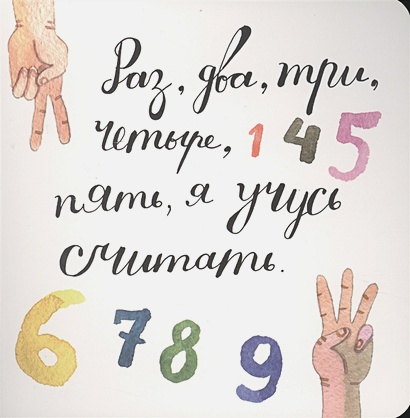 Раз, два, три,
четыре, 1 4 5
пять, я учусь
считать.
6 7 8 9